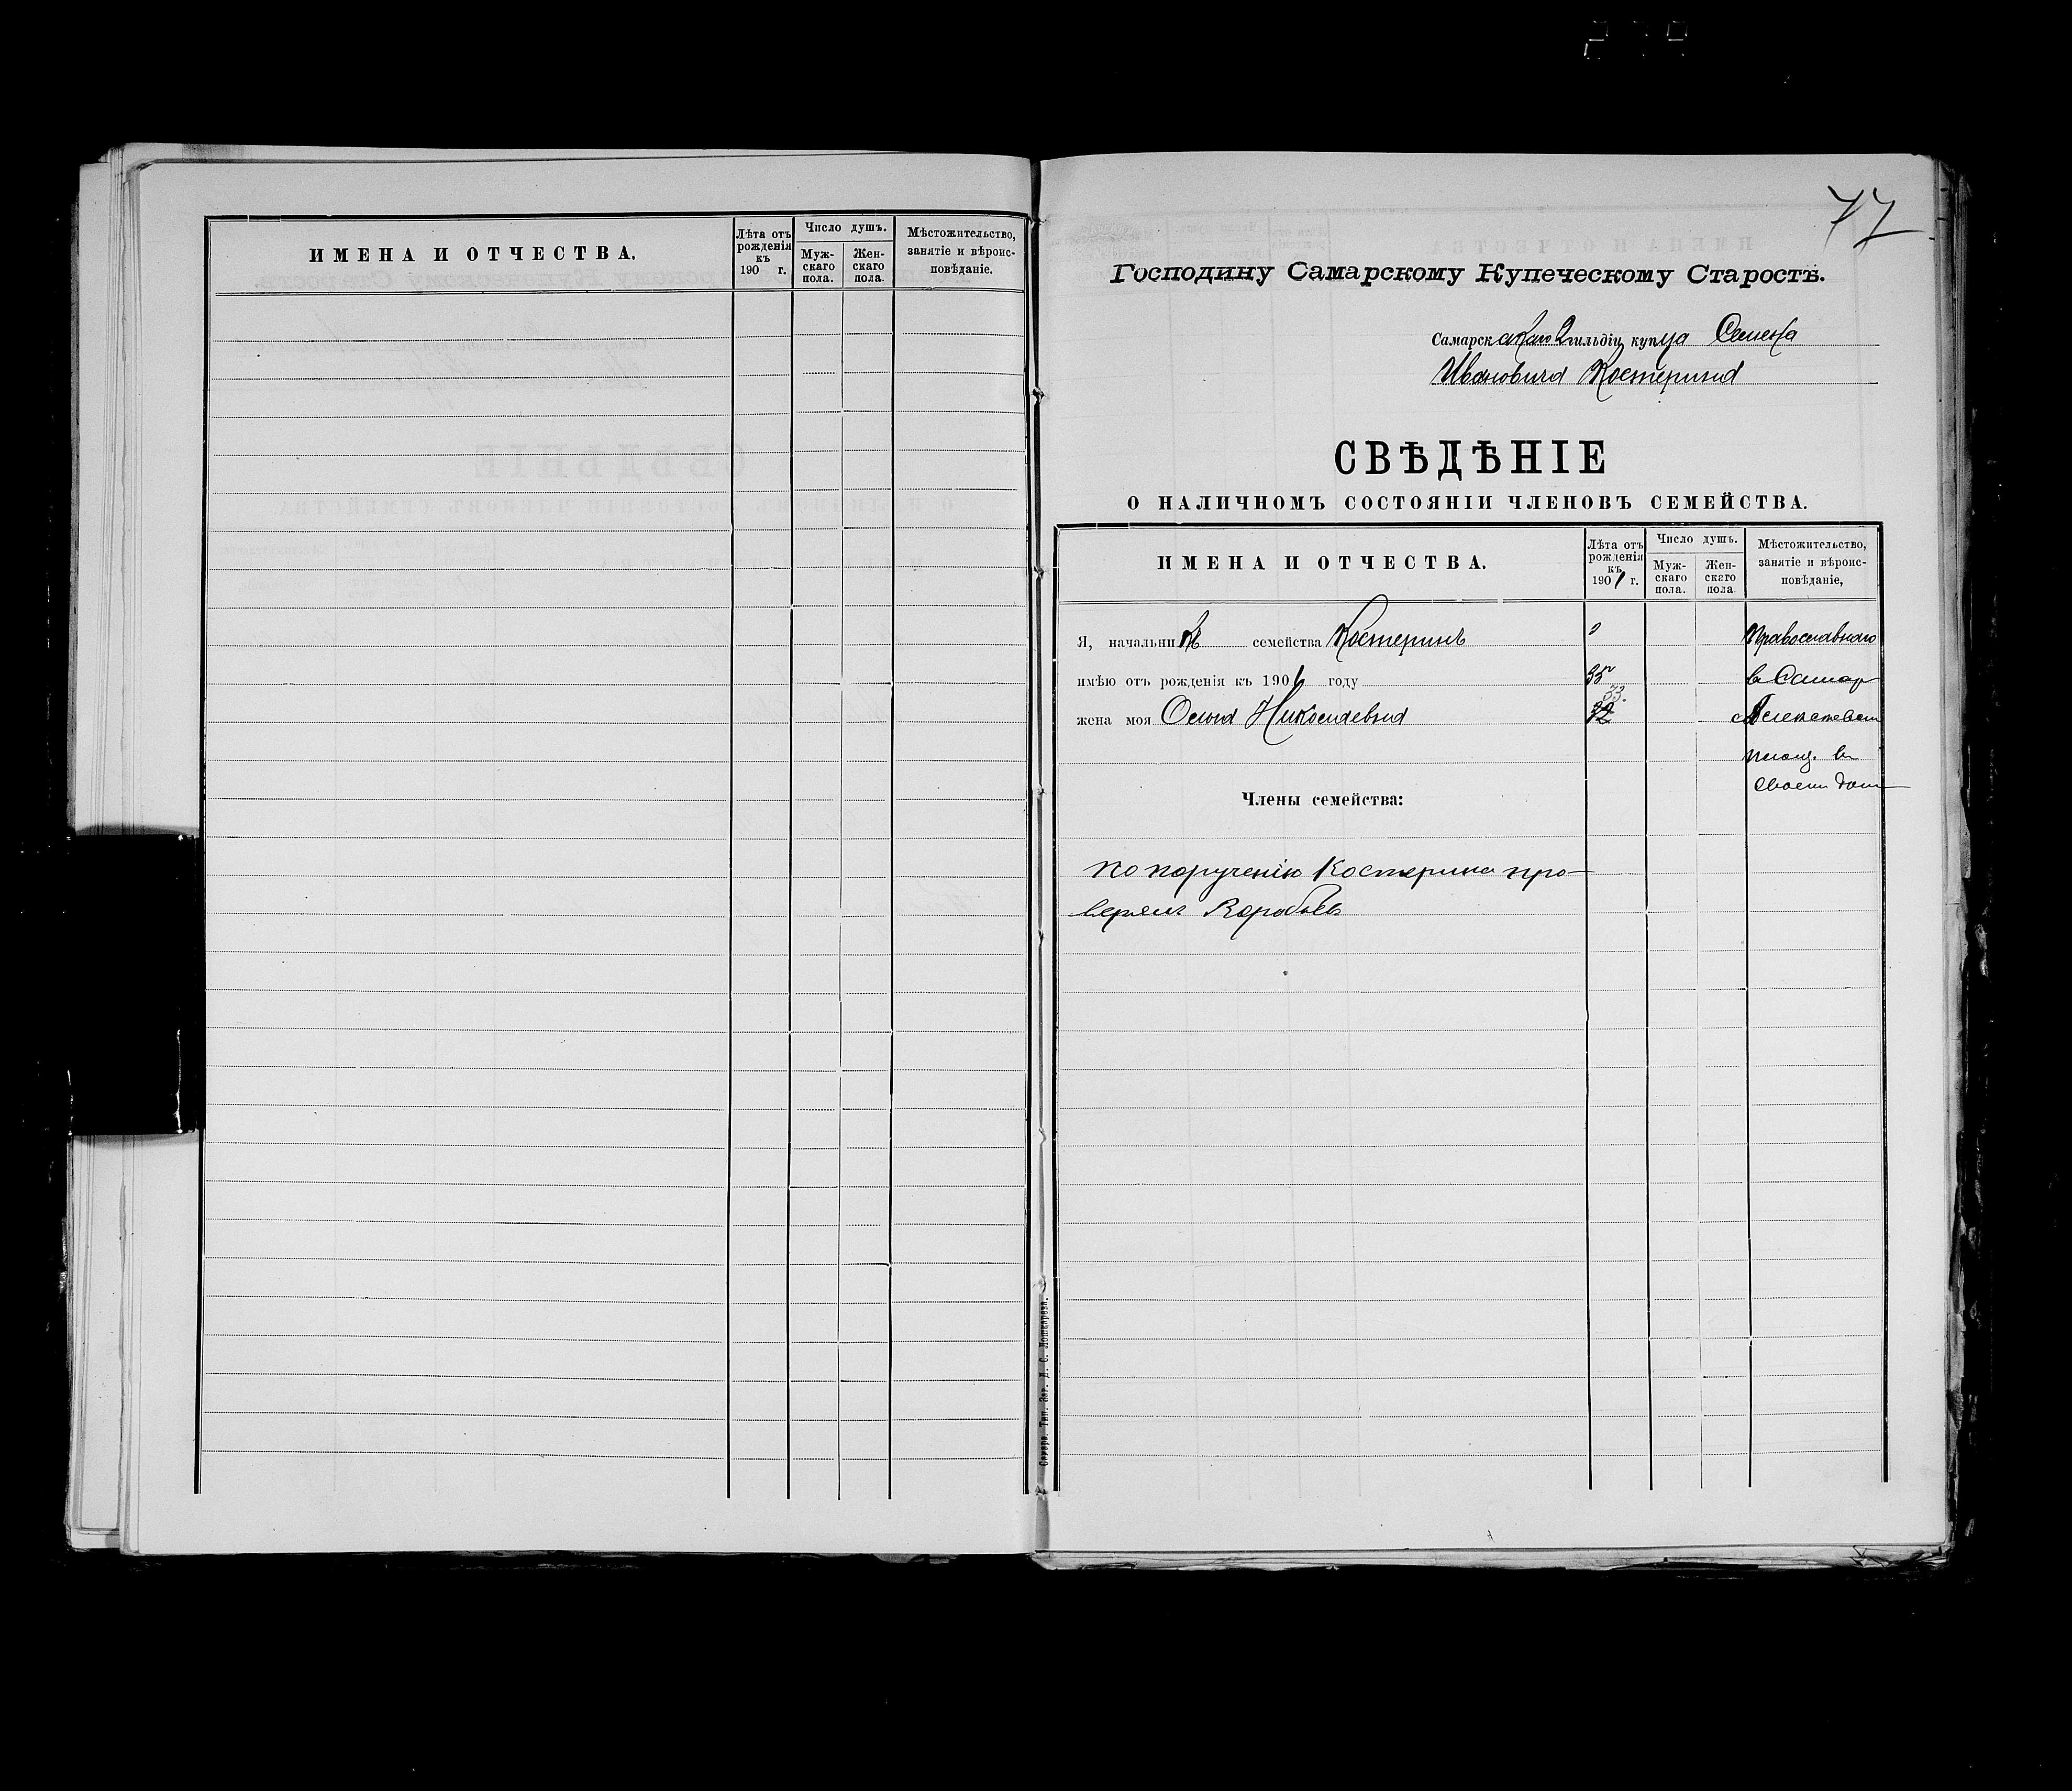 ИМЕНА И ОТЧЕСТВА.
Лѣта отъ рожденія къ 190 г.
Число душъ.
Муж-скаго пола.
Жен-скаго пола.
Мѣстожительство, занятіе и вѣроис-повѣданіе.
77
Господину Самарскому Купеческому Старостѣ.
Самарскаго 2 гильдіи купца Семена
Ивановича Костерина
СВѢДѢНІЕ
О НАЛИЧНОМЪ СОСТОЯНІИ ЧЛЕНОВЪ СЕМЕЙСТВА.
ИМЕНА И ОТЧЕСТВА.
Лѣта отъ рожденія къ 190 г.
Число душъ.
Муж-скаго пола.
Жен-скаго пола
Мѣстожительство, занятіе и вѣроис-повѣданіе,
Я, начальникъ семейства Костеринъ Православнаго
имѣю отъ рожденія къ 190 году 35 в Самар
жена моя Ольга Николаевна 32 33. Алексѣевск
площ. в
своем дом
Члены семейства:
по порученію Костерина про-
верялъ Воробьевъ
Самара. Тип. Заг. Д. С. Лошкарева.